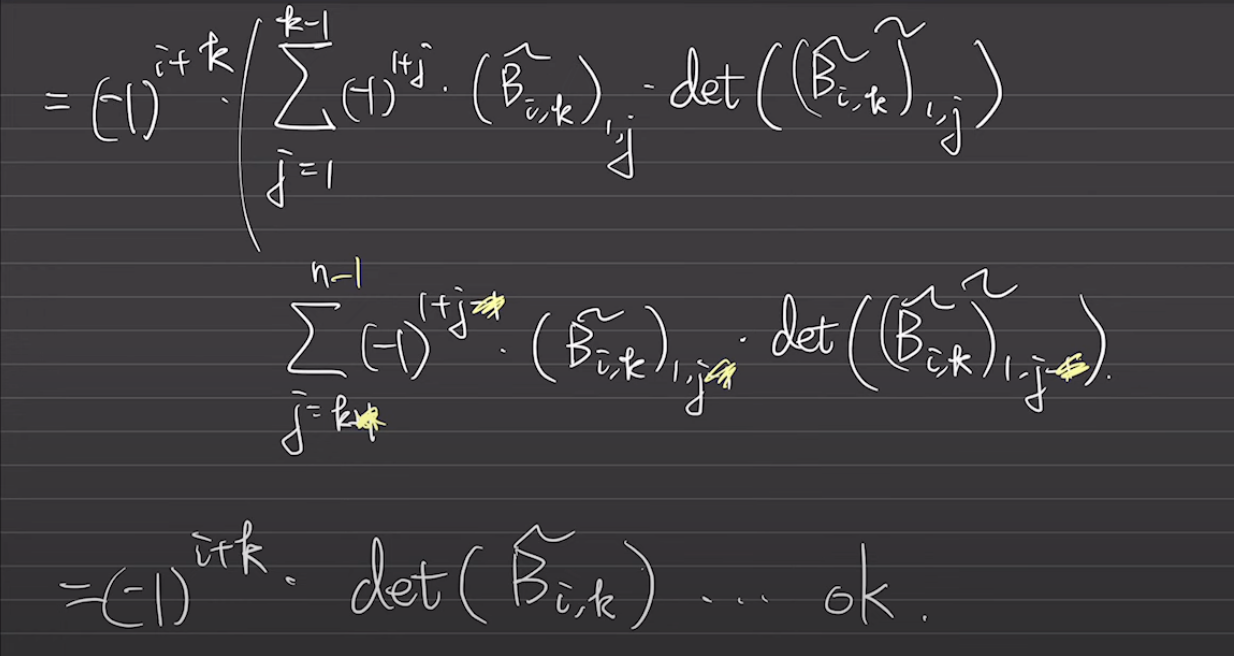 = (-1)^{i+k} · ( \sum_{j=1}^{k-1} (-1)^{1+j} · (\tilde{B}_{i,k})_{1,j} · det( \tilde{(\tilde{B}_{i,k})}_{1,j} )
\sum_{j=k}^{n-1} (-1)^{1+j} · (\tilde{B}_{i,k})_{1,j} · det( \tilde{(\tilde{B}_{i,k})}_{1,j} ).
= (-1)^{i+k} · det( \tilde{B}_{i,k} ) ... ok.